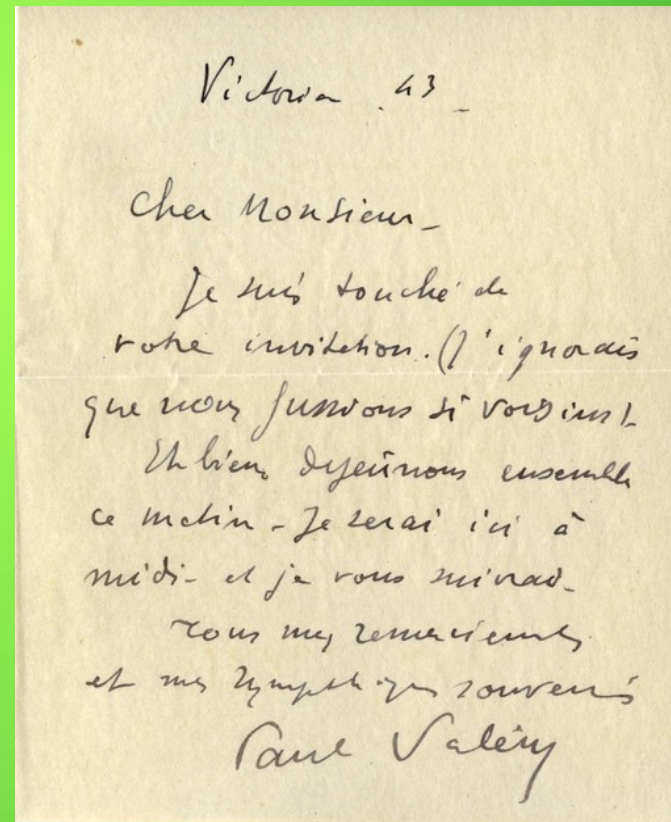 Victoria 43 -
Cher Monsieur -
Je suis touché de
votre invitation. (J'ignorais
que nous fussions si voisins).
Eh bien, déjeûnons ensemble
ce matin - Je serai ici à
midi - et je vous suivrai -
Tous mes remerciements
et mes sympathiques souvenirs
Paul Valéry